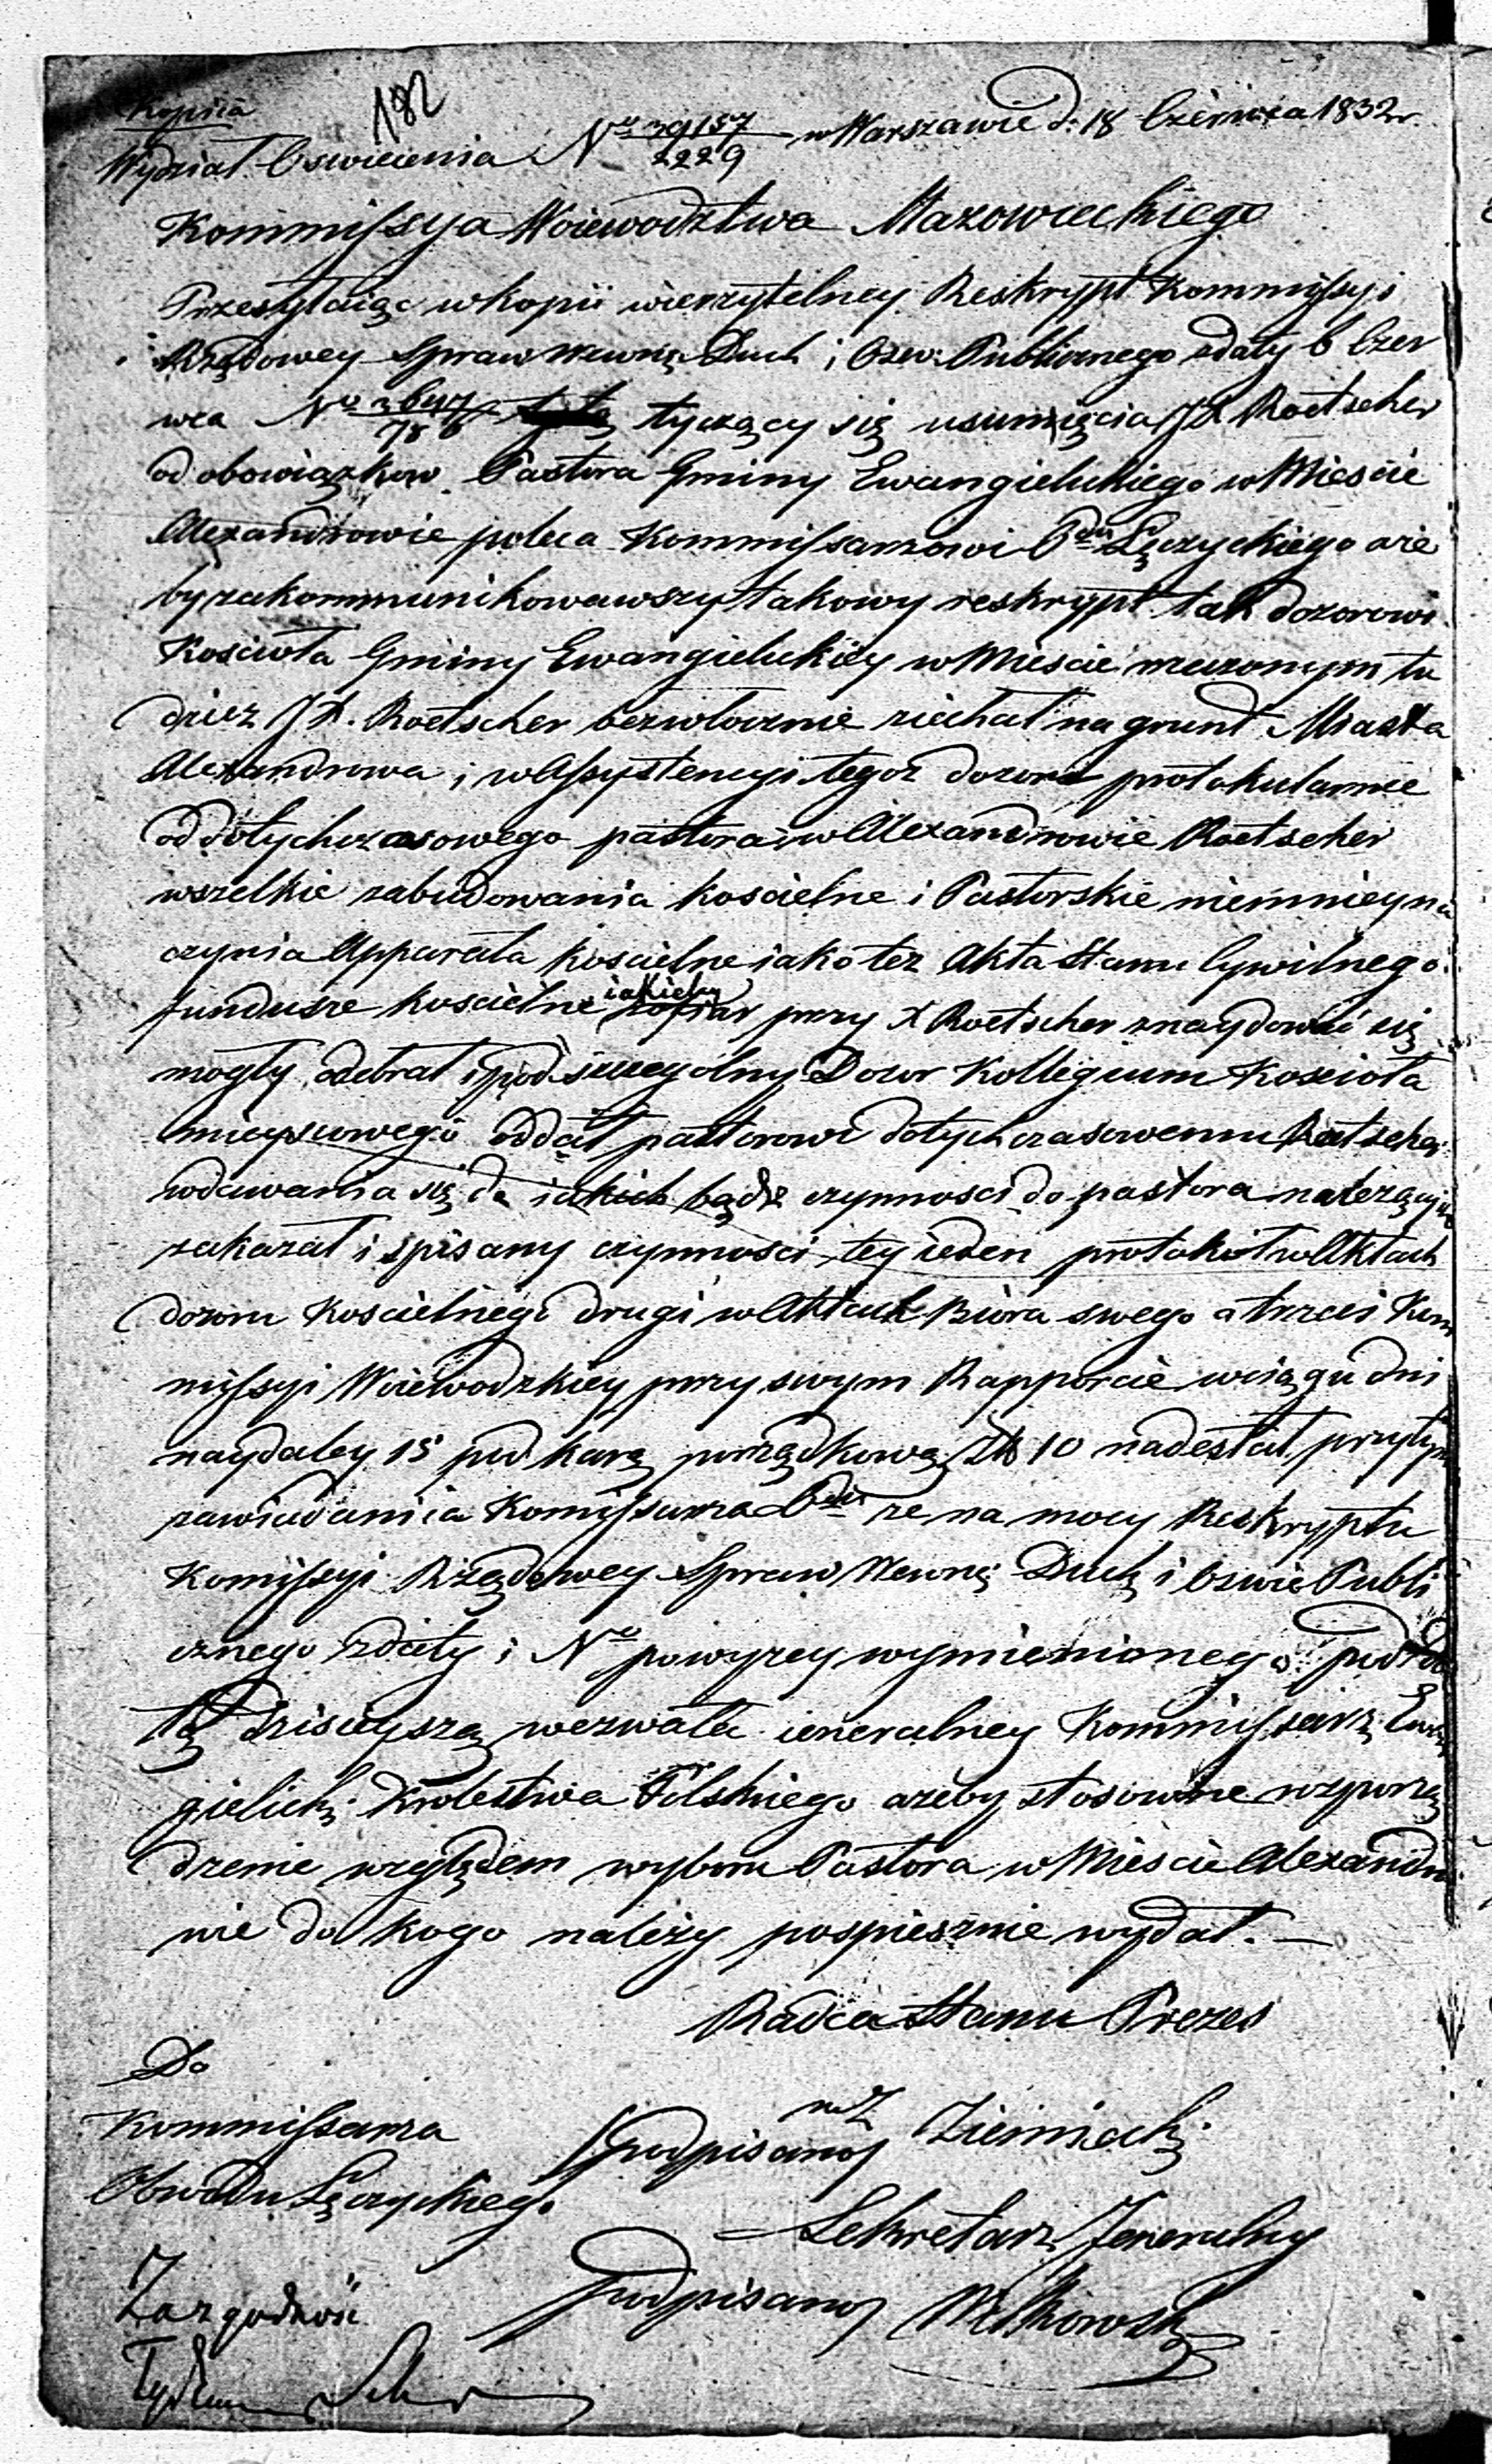 Kopiia
182
Wydział Oswiecenia No 39157/2229 w Warszawie d. 18 Czerwca 1832 r.
Kommissya Woiewodztwa Mazowieckiego
Przesyłaiąc w kopii wierzytelney Reskrypt Kommissyi
Rządowey Spraw Wewnę: Duch i Oswi: Publicznego z daty 6 Czer
wca No tyczący się usunięcia JX Roetscher
od obowiązkow Pastora Gminy Ewangielickiego w Miescie
Alexandrowie poleca Kommissarzowi Odu Łęczyckiego aże
by zakommunikowawszy takowy reskrypt tak dozorowi
Kościoła Gminy Ewangielickiey w Miescie rzeczonym tu
dzież JX. Roetscher bezwłocznie ziechał na grunt Miasta
Alexandrowa i w Assystencyi tegoż dozoru protokularnie
od dotychczasowego pastora w Alexandrowie Roetscher
wszelkie zabudowania koscielne i Pastorskie niemniey na
czynia Apparata koscielne iako też Akta Stanu Cywilnego
fundusze koscielne iakieby przy X Roetscher znaydować się
mogły odebrał i pod szczegolny Dozor Kollegium Koscioła
mieyscowego oddał pastorowi dotychczasowemu Roetscher
wdawania się do iakich bądź czynnosci do pastora należących
zakazał i spisany czynnosci tey ieden protokoł w Aktach
dozoru Koscielnego drugi w Aktach Biora swego a trzeci Kom
missyi Woiewodzkiey przy swym Rapporcie w ciągu dni
naydaley 15 pod karą porządkową Zł 10 nadesłał, przytym
zawiadamia Komissarza Odu że na mocy Reskryptu
Komissyi Rządowey Spraw Wewnę: Duch i Oswie Publi
cznego z daty i No powyżey wymienionego pod da
tą dzisieyszą wezwała ieneralney Kommissarz Ewa
gielicki Krolestwa Polskiego ażeby stosowne rozporzą
dzenie względem wyboru Pastora w Miescie Alexandro
wie do kogo należy pospiesznie wydał. —
Radca Stanu Prezes
Do
Kommissarza
Obwodu Łęczyckiego
podpisano
Sekretarz Jeneralny
podpisano
Za zgodnosc